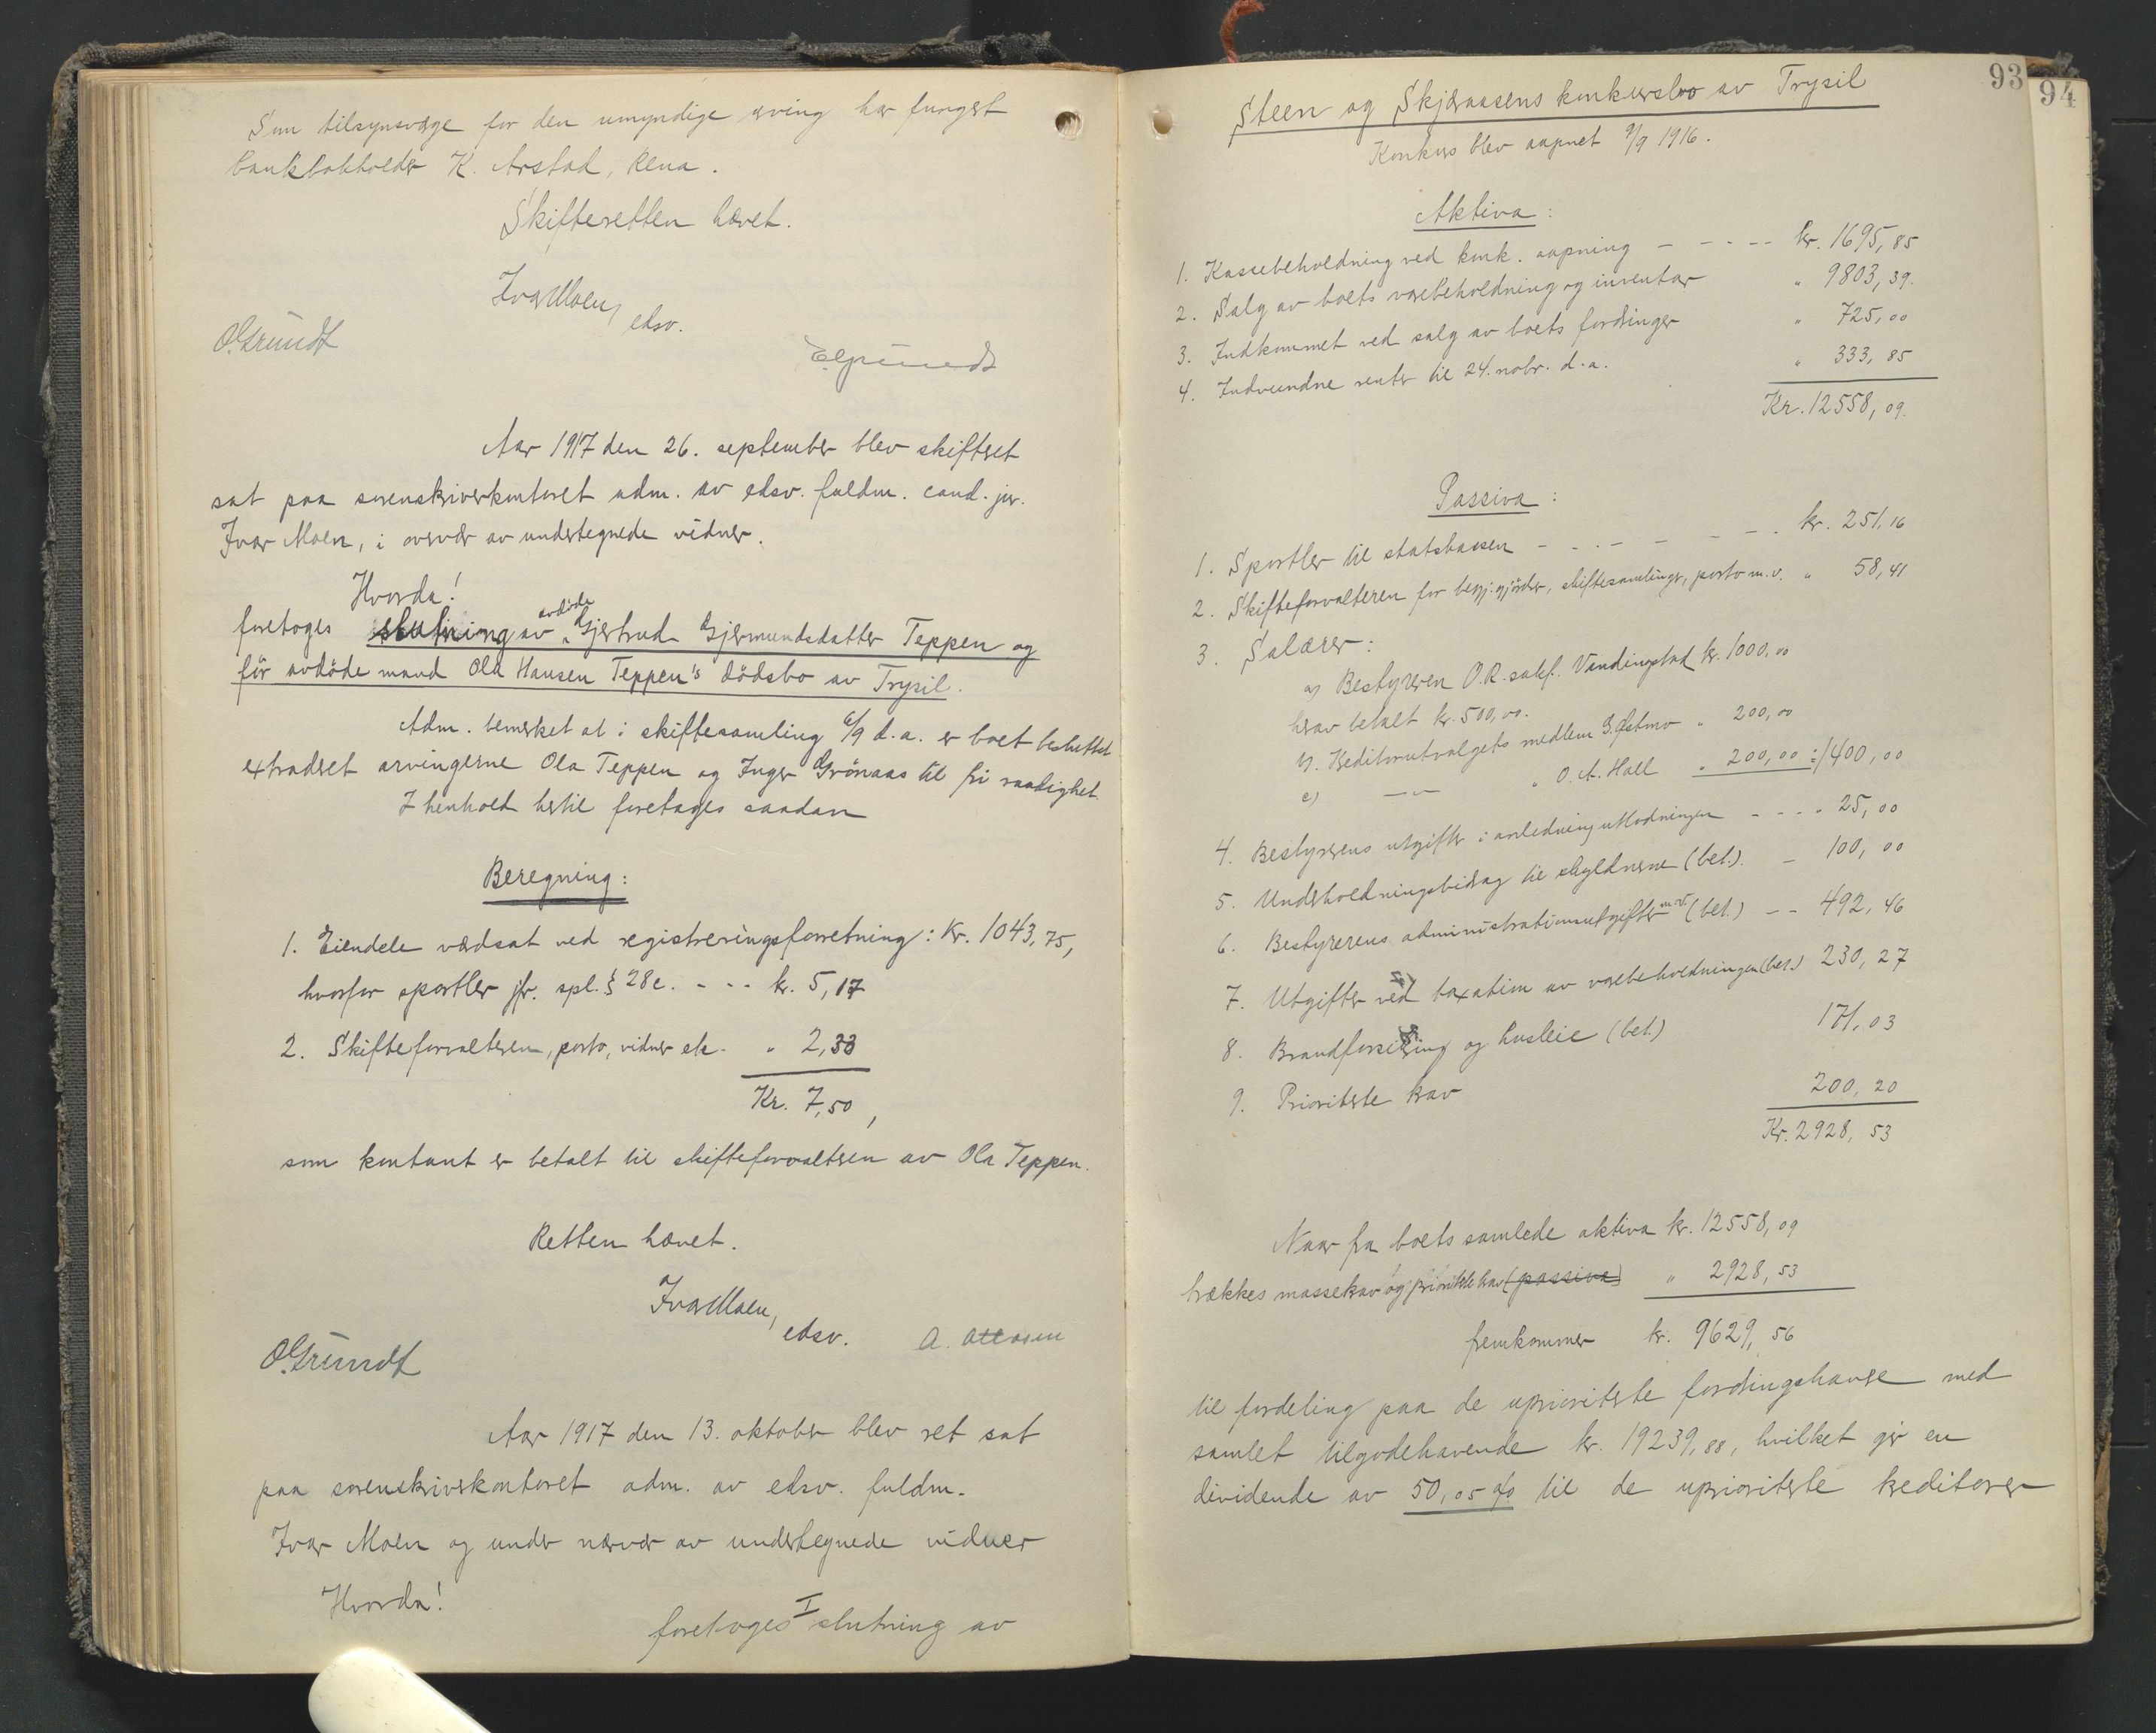 Som tilsynsværge for den umyndige arving har fungert
bankbokholder K. Arstad, Rena.
Skifteretten hævet.
Ivar Moen,
edsv.
O. Grundt
E. Grundt
Aar 1917 den 26. september blev skifteret
sat paa sorenskriverkontoret adm. av edsv. fuldm. cand. jur.
Ivar Moen, i overvær av undertegnede vidner.
Hvorda!
foretoges slutning av avdöde Gjertrud Gjermundsdatter Teppen og
för avdöde mand Ola Hansen Teppen's dödsbo av Trysil.
Adm. bemerket at i skiftesamling 6/9 d.a. er boet besluttet
extradert arvingerne Ola Teppen og Inger Grönaas til fri raadighet.
I henhold hertil foretages saadan
Beregning:
1. Eiendele værdsat ved registreringsforretning: Kr. 1043,75,
hvorfor sportler jfr. spl. § 28c. - - - kr. 5,17
2. Skifteforvalteren, porto, vidner etc. " 2,33
Kr. 7,50,
som kontant er betalt til skifteforvalteren av Ola Teppen.
Retten hævet.
Ivar Moen,
edsv.
A. Ottosen
O. Grundt
Aar 1917 den 13. oktober blev ret sat
paa sorenskriverkontoret adm. av edsv. fuldm.
Ivar Moen og under nærvær av undertegnede vidner
Hvorda!
foretoges I slutning av
93
94
Steen og Skjæraasens konkursbo av Trysil
Konkurs blev aapnet 9/9 1916.
Aktiva:
1. Kassebeholdning ved konk. aapning - - - - - kr. 1695,85
2. Salg av boets varebeholdning og inventar " 9803,39.
3. Indkommet ved salg av boets fordringer " 725,00
4. Indvundne renter til 24. nobr. d.a. " 333,85
Kr. 12558,09.
Passiva:
1. Sportler til statskassen - - - - - - - kr. 251,16
2. Skifteforvalteren for begj. gjörder, skiftesamlinger, porto m.v. " 58,41
3. Salærer:
a) Bestyreren O.R. sakf. Vandingstad kr. 1000,00
herav betalt kr. 500,00.
b). Kreditorutvalgets medlem G. Østmo " 200,00
c) —"— " O. A. Hall " 200,00 = 1400,00
4. Bestyrerens utgifter i anledning utlodningen - - - - 25,00
5. Underholdningsbidrag til skyldnerne (bet.). - 100,00
6. Bestyrerens administrationsutgifter m.v. (bet.) - - 492,46
7. Utgifter ved taxation av varebeholdningen (bet.) 230,27
8. Brandforsikring og husleie (bet.) 171,03
9. Prioriterte krav 200,20
Kr. 2928,53
Naar fra boets samlede aktiva kr. 12558,09
trækkes massekrav og prioriterte krav (passiva) " 2928,53
fremkommer kr. 9629,56
til fordeling paa de uprioriterte fordringshavere med
samlet tilgodehavende kr. 19239,88, hvilket gir en
dividende av 50,05 % til de uprioriterte kreditorer